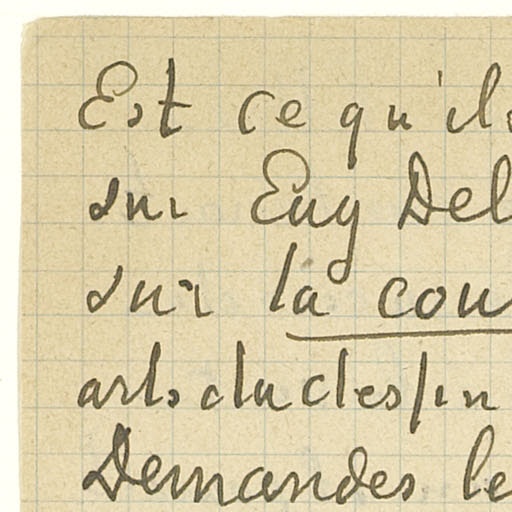 Est ce qu'ils
sur Eug Del
sur la cou
arts du dessin
Demandes le